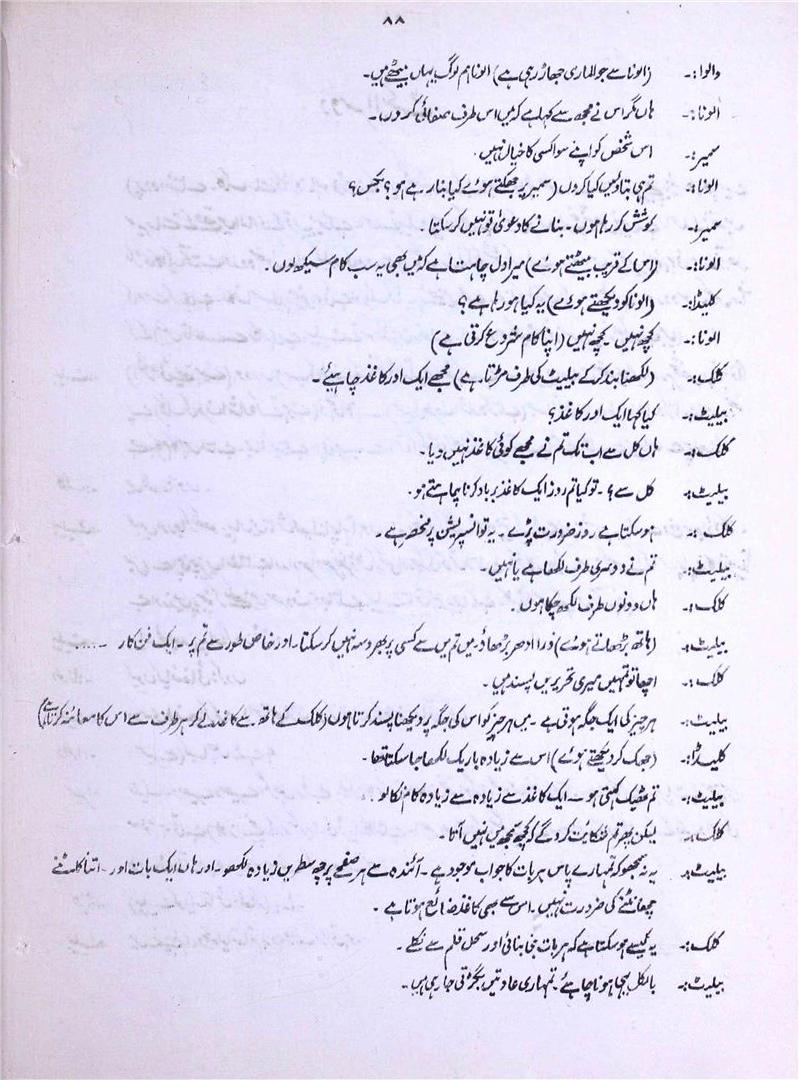 ۸۸
والوا:۔ (الونا سے جو الماری جھاڑ رہی ہے) الونا ہم لوگ یہاں بیٹھے ہیں۔
الونا:۔ ہاں مگر اس نے مجھ سے کہا ہے کہ میں اس طرف صفائی کر دوں۔
سمیر:۔ اس شخص کو اپنے سوا کسی کا خیال نہیں۔
الونا:۔ تم ہی بتاؤ میں کیا کروں (سمیر پر جھکتے ہوئے) کیا بنا رہے ہو؟ بکس؟
سمیر:۔ کوشش کر رہا ہوں۔ بنانے کا دعویٰ تو نہیں کر سکتا۔
الونا:۔ (اس کے قریب بیٹھتے ہوئے) میرا دل چاہتا ہے کہ میں بھی یہ سب کام سیکھ لوں۔
کلیڈا:۔ (الونا کو دیکھتے ہوئے) یہ کیا ہو رہا ہے؟
الونا:۔ کچھ نہیں۔ کچھ نہیں (اپنا کام شروع کرتی ہے)
کلک:۔ (لکھنا بند کر کے بیلیٹ کی طرف مڑتا ہے) مجھے ایک اور کاغذ چاہیئے۔
بیلیٹ:۔ کیا کہا ایک اور کاغذ؟
کلک:۔ ہاں کل سے اب تک تم نے مجھے کوئی کاغذ نہیں دیا۔
بیلیٹ:۔ کل سے؟۔ تو کیا تم روز ایک کاغذ برباد کرنا چاہتے ہو۔
کلک:۔ ہو سکتا ہے روز ضرورت پڑے۔ یہ تو انسپریشن پر منحصر ہے۔
بیلیٹ:۔ تم نے دوسری طرف لکھا ہے یا نہیں۔
کلک:۔ ہاں دونوں طرف لکھ چکا ہوں۔
بیلیٹ:۔ (ہاتھ بڑھاتے ہوئے) ذرا ادھر بڑھاؤ۔ میں تم میں سے کسی پر بھروسہ نہیں کر سکتا۔ اور خاص طور سے تم پر۔ ایک فن کار ......
کلک:۔ اچھا تو تمہیں میری تحریریں پسند ہیں۔
بیلیٹ:۔ ہر چیز کی ایک جگہ ہوتی ہے۔ میں ہر چیز کو اس کی جگہ پر دیکھنا پسند کرتا ہوں (کلک کے ہاتھ سے کاغذ لے کر ہر طرف سے اس کا معائنہ کرتا ہے)
کلیڈا:۔ (جھک کر دیکھتے ہوئے) اس سے زیادہ باریک لکھا جا سکتا تھا۔
بیلیٹ:۔ تم ٹھیک کہتی ہو۔ ایک کاغذ سے زیادہ سے زیادہ کام نکالو۔
کلک:۔ لیکن پھر تم شکایت کرو گے کہ کچھ سمجھ میں نہیں آتا۔
بیلیٹ:۔ یہ نہ سمجھو کہ تمہارے پاس ہر بات کا جواب موجود ہے۔ آئندہ سے ہر صفحے پر چھ سطریں زیادہ لکھو۔ اور ہاں ایک بات اور۔ اتنا کاٹنے
چھانٹنے کی ضرورت نہیں۔ اس سے بھی کاغذ ضائع ہوتا ہے۔
کلک:۔ یہ کیسے ہو سکتا ہے کہ ہر بات بنی بنائی اور مکمل قلم سے نکلے۔
بیلیٹ:۔ بالکل یہی ہونا چاہئے۔ تمہاری عادتیں بگڑتی جا رہی ہیں۔